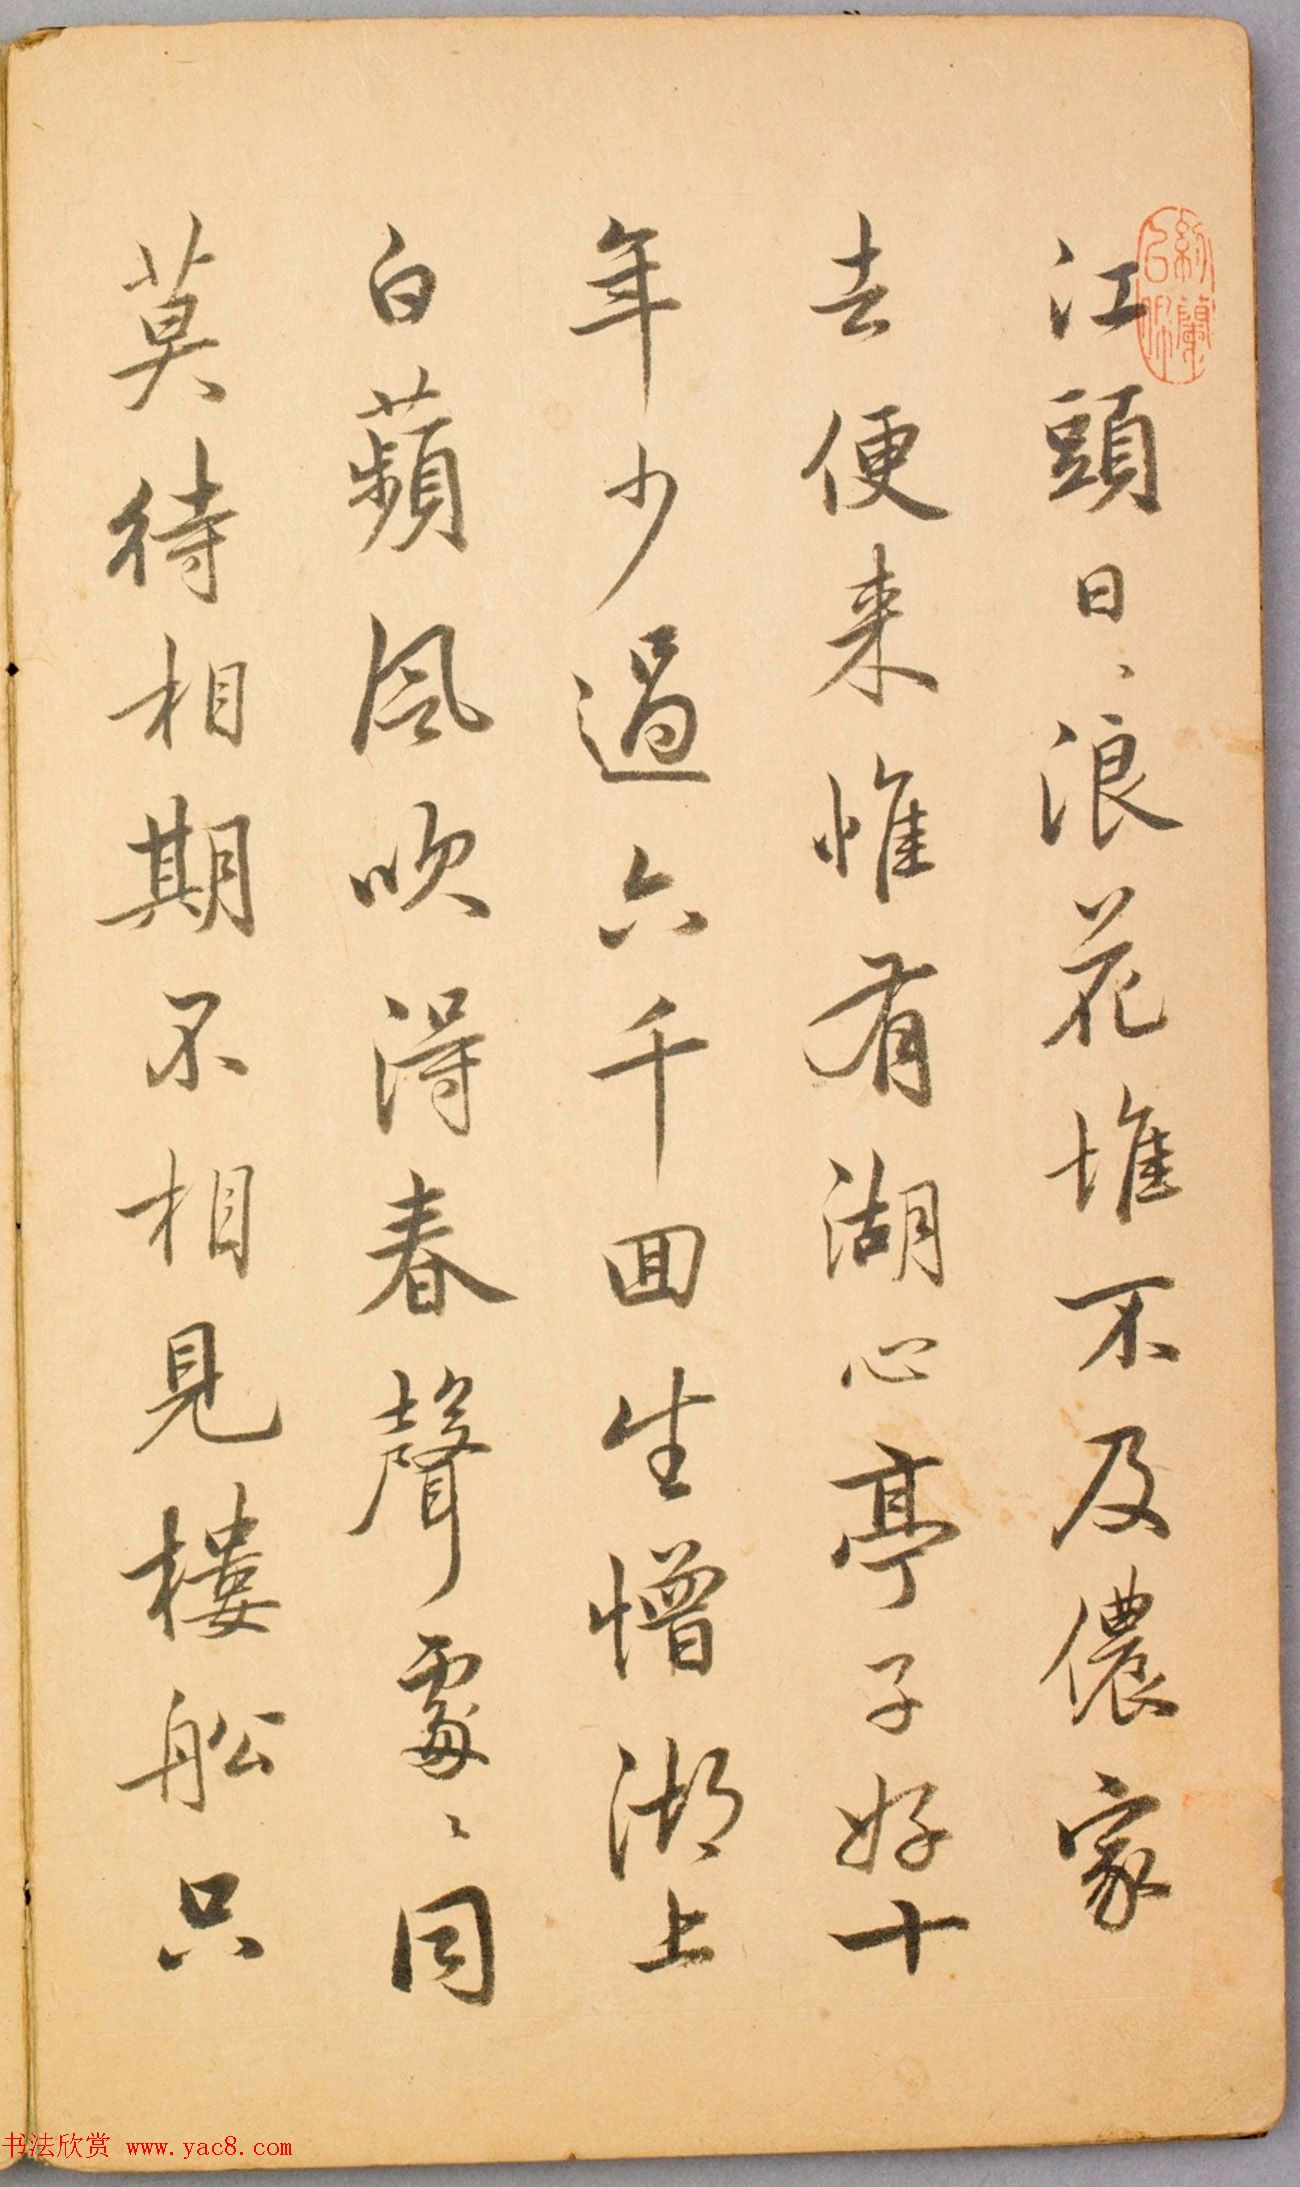 江頭日、浪花堆不及儂家
去便来惟有湖心亭子好十
年少過六千回生憎湖上
白蘋風吹得春聲處〻同
莫待相期不相見樓船只
书法欣赏 www.yac8.com